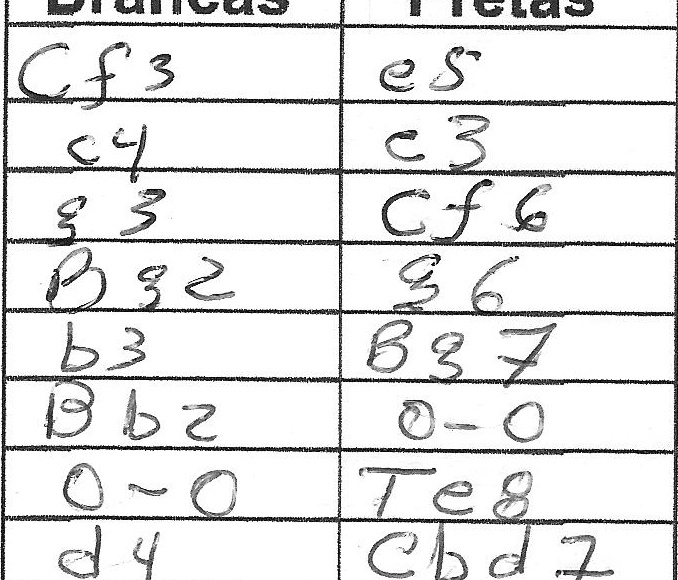 Brancas Pretas
Cf3 e5
c4 c3
g3 Cf6
Bg2 g6
b3 Bg7
Bb2 0-0
0-0 Te8
d4 Cbd7